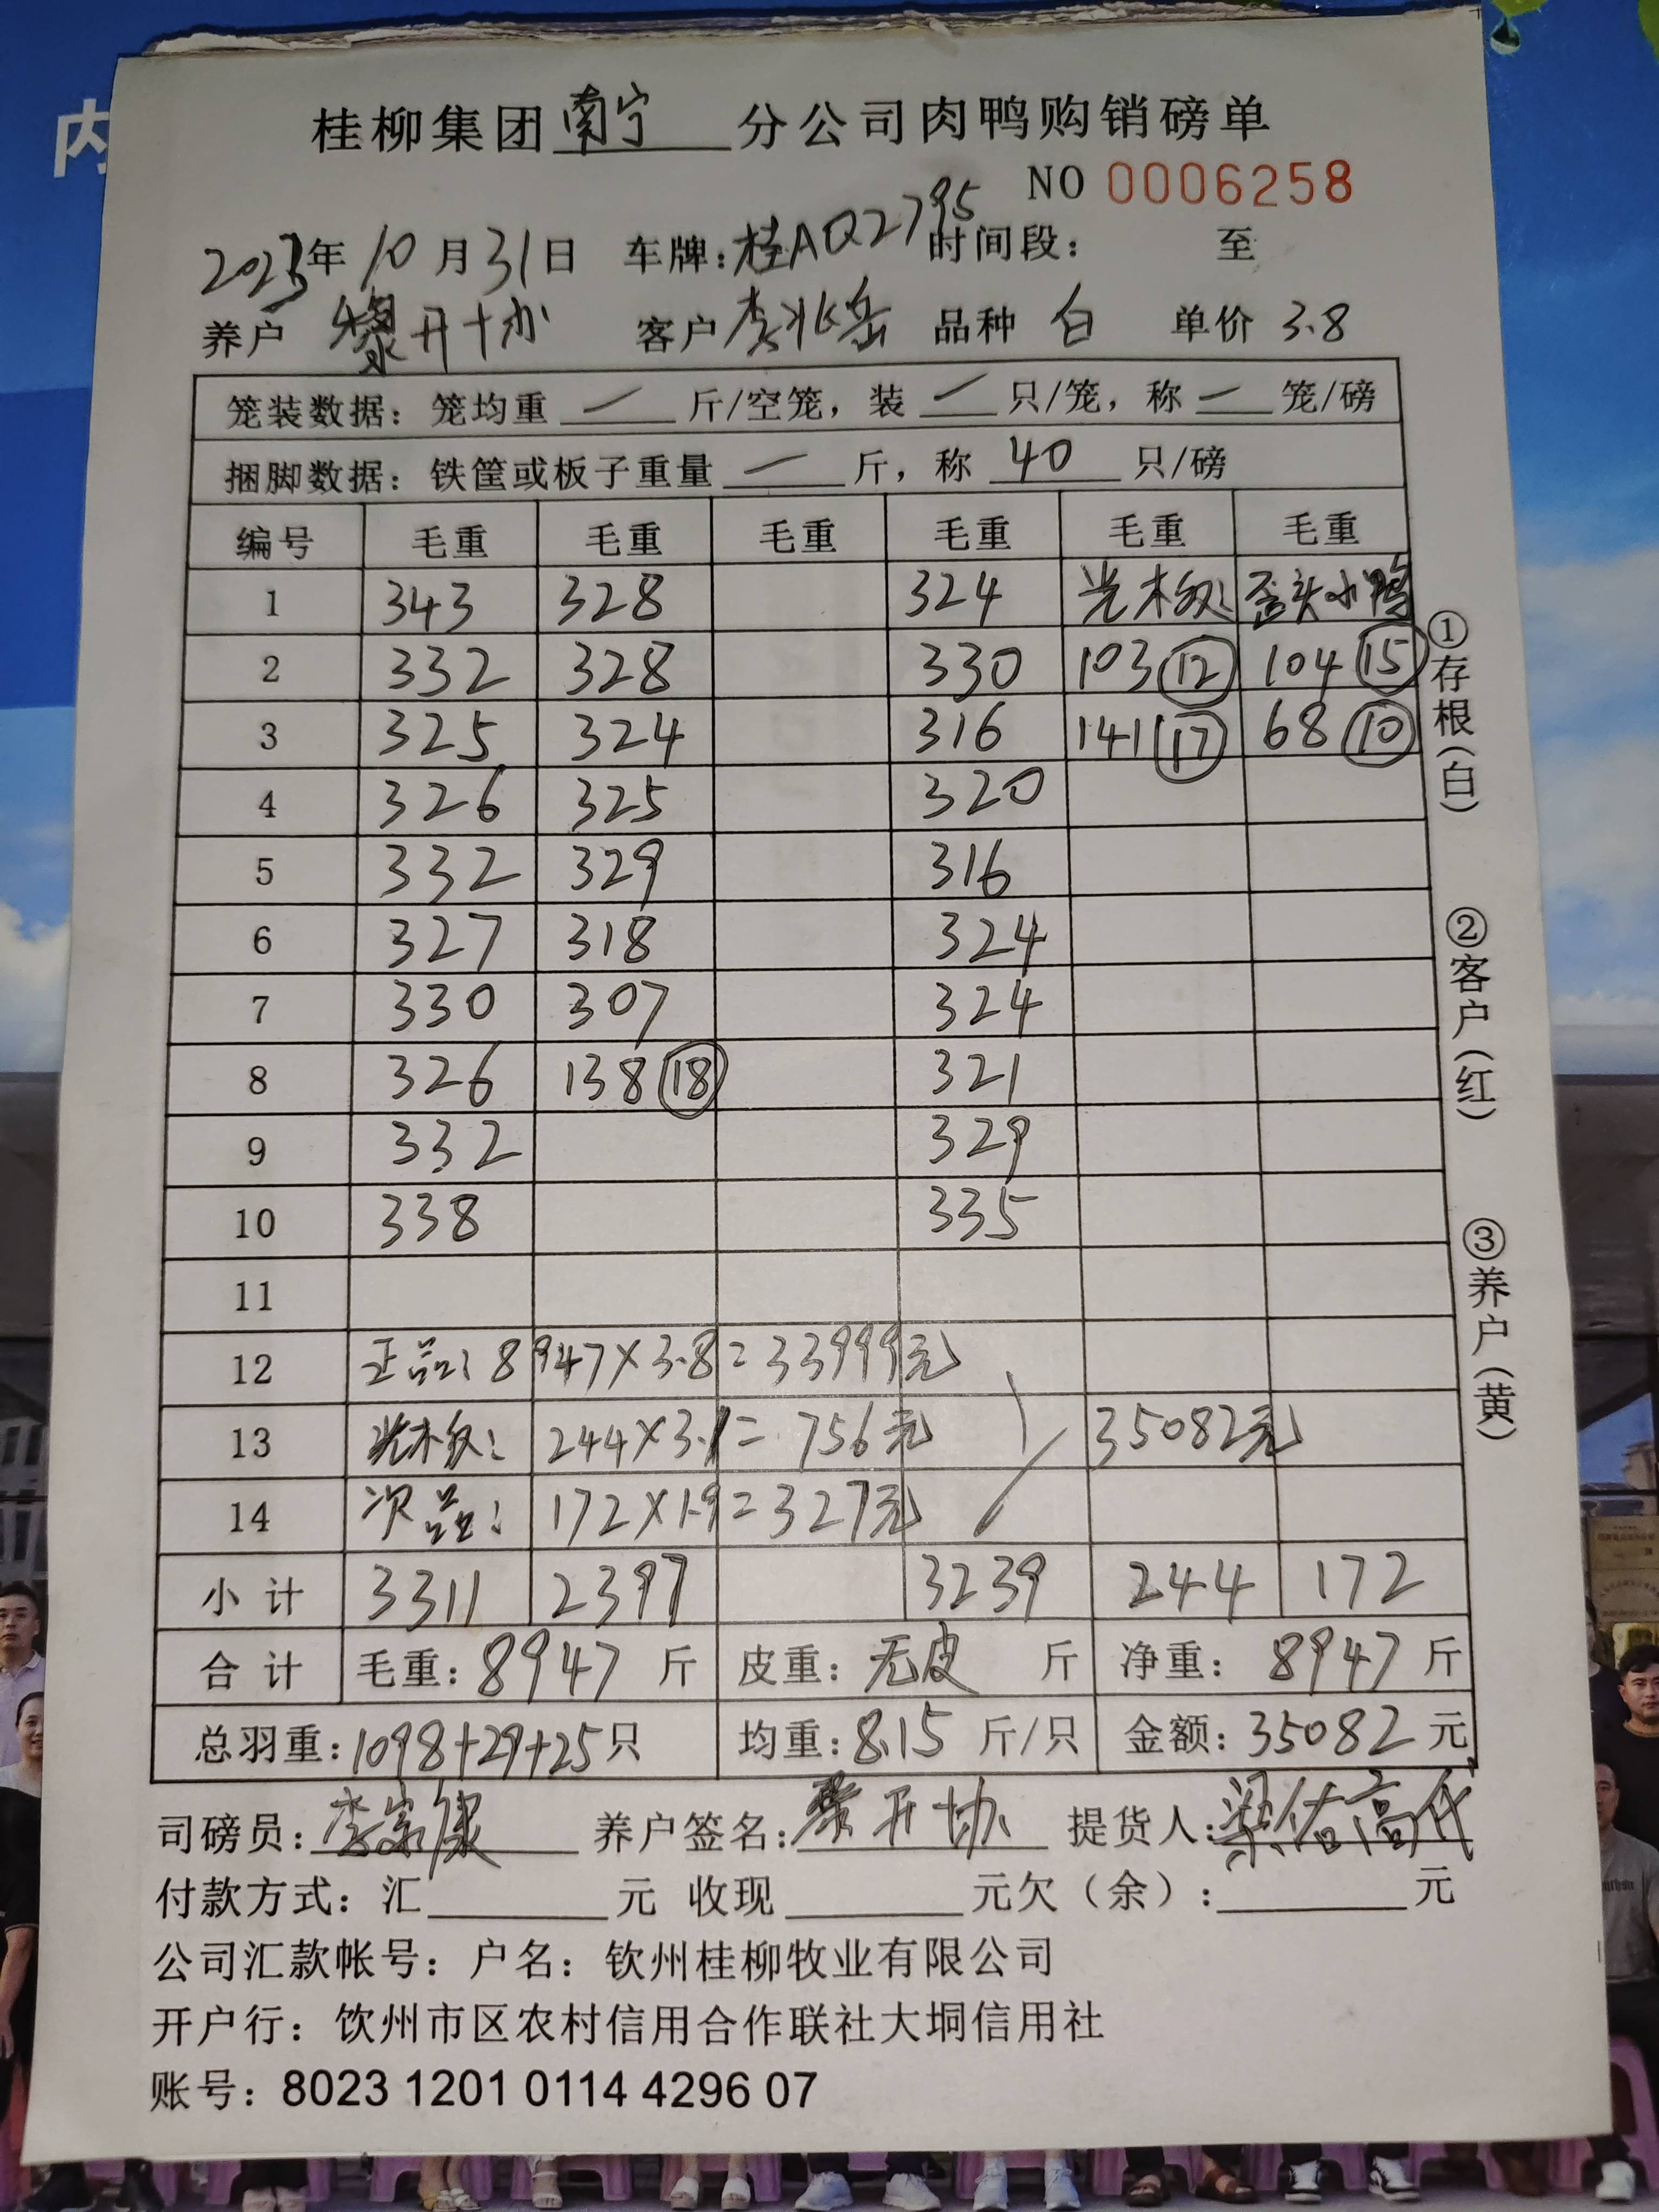 内
桂柳集团南宁分公司肉鸭购销磅单
NO 0006258
2023年10月31日 车牌:桂AQ2795 时间段: 至
养户 黎开协 客户 李兆岳 品种 白 单价 3.8
笼装数据: 笼均重 一 斤/空笼, 装 一 只/笼, 称 一 笼/磅
捆脚数据: 铁筐或板子重量 一 斤, 称 40 只/磅
编号 毛重 毛重 毛重 毛重 毛重 毛重
1 343 328 324 光木级: 歪头小鸭
2 332 328 330 103 ⑫ 104 ⑮
3 325 324 316 141 ⑰ 68 ⑩
4 326 325 320
5 332 329 316
6 327 318 324
7 330 307 324
8 326 138 ⑱ 321
9 332 329
10 338 335
11
12 正品: 8947×3.8=33999元
13 光木级: 244×3.1=756元 35082元
14 次品: 172×1.9=327元
小计 3311 2397 3239 244 172
合计 毛重: 8947 斤 皮重: 无皮 斤 净重: 8947 斤
总羽重: 1098+29+25只 均重: 8.15 斤/只 金额: 35082 元
司磅员: 李宗康 养户签名: 黎开协 提货人: 梁佑高代
付款方式: 汇 元 收现 元欠(余): 元
公司汇款帐号: 户名: 钦州桂柳牧业有限公司
开户行: 钦州市区农村信用合作联社大垌信用社
账号: 8023 1201 0114 4296 07
①存根(白)
②客户(红)
③养户(黄)